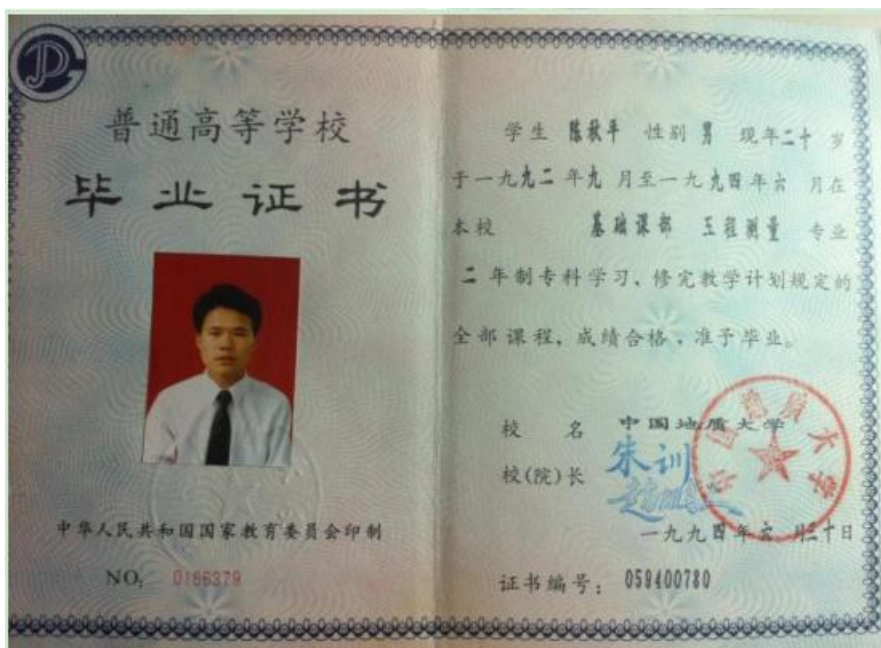 普通高等学校
毕业证书
中华人民共和国国家教育委员会印制
NO: 0166379
学生 陈秋平 性别 男 现年二十 岁
于一九九二年九 月至一九九四年六 月在
本校 基础课部 工程测量 专业
二 年制专科学习、修完教学计划规定的
全部课程，成绩合格，准予毕业。
校 名 中国地质大学
校(院)长 朱训
中国地质大学
一九九四年六 月三十日
证书编号： 059400780